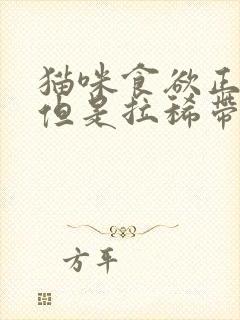 猫咪食欲正
但是拉稀带
方平